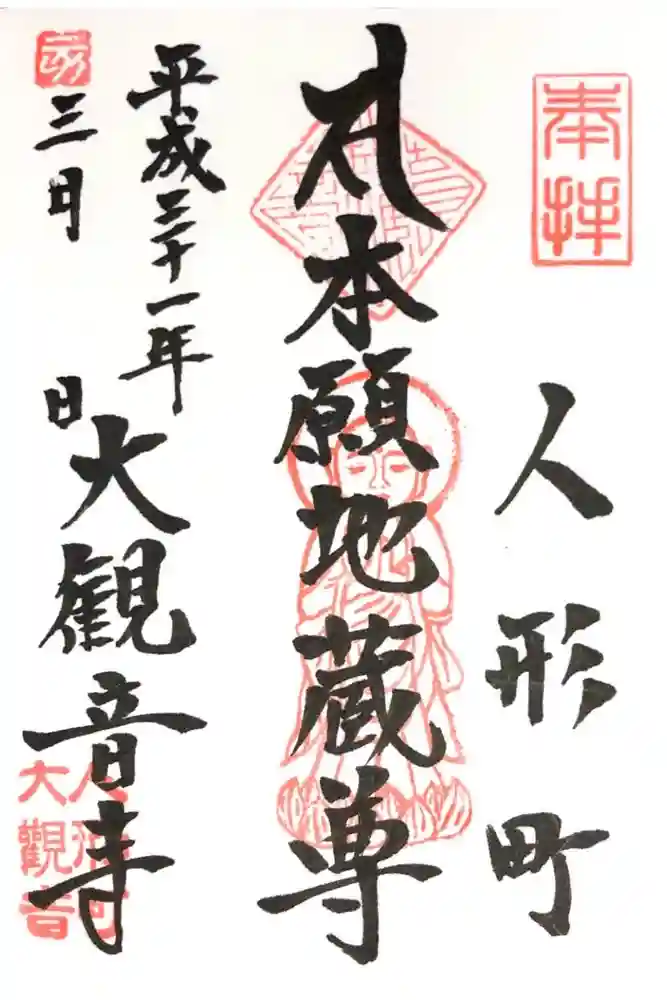 奉拝
人形町
本願地蔵尊
平成三十一年
三月 日
大観音寺
人形町
大觀音